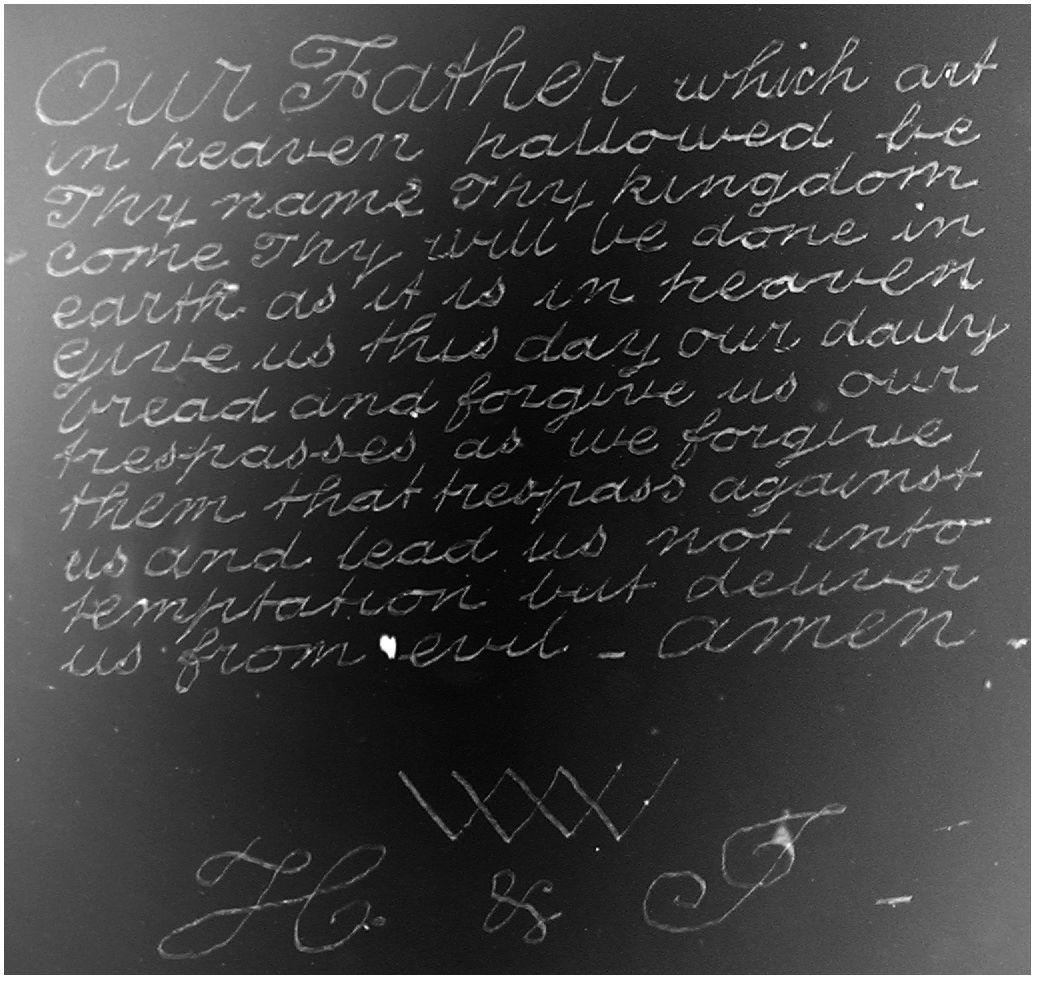 Our Father which art
in heaven hallowed be
Thy name Thy kingdom
come Thy will be done in
earth as it is in heaven
Give us this day our daily
bread and forgive us our
trespasses as we forgive
them that trespass against
us and lead us not into
temptation but deliver
us from evil - Amen -
WW
H. & T -